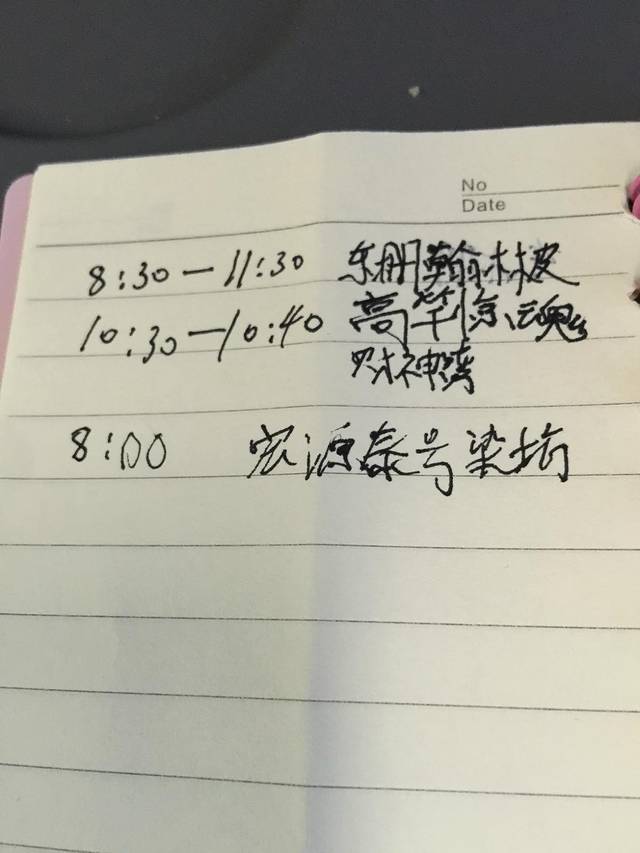 No
Date
8:30—11:30 东栅翰林楼
10:30—10:40 高竿惊魂
财神湾
8:00 宏源泰号染坊